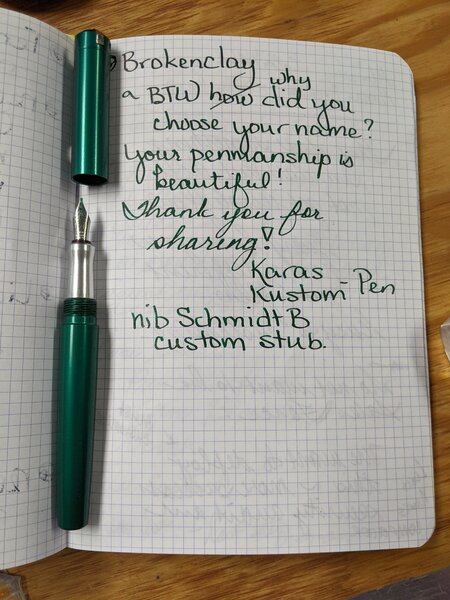 Brokenclay
why
a BTW how did you
choose your name?
Your penmanship is
beautiful!
Thank you for
sharing!
Karas - Pen
Kustom
nib Schmidt B
custom stub.